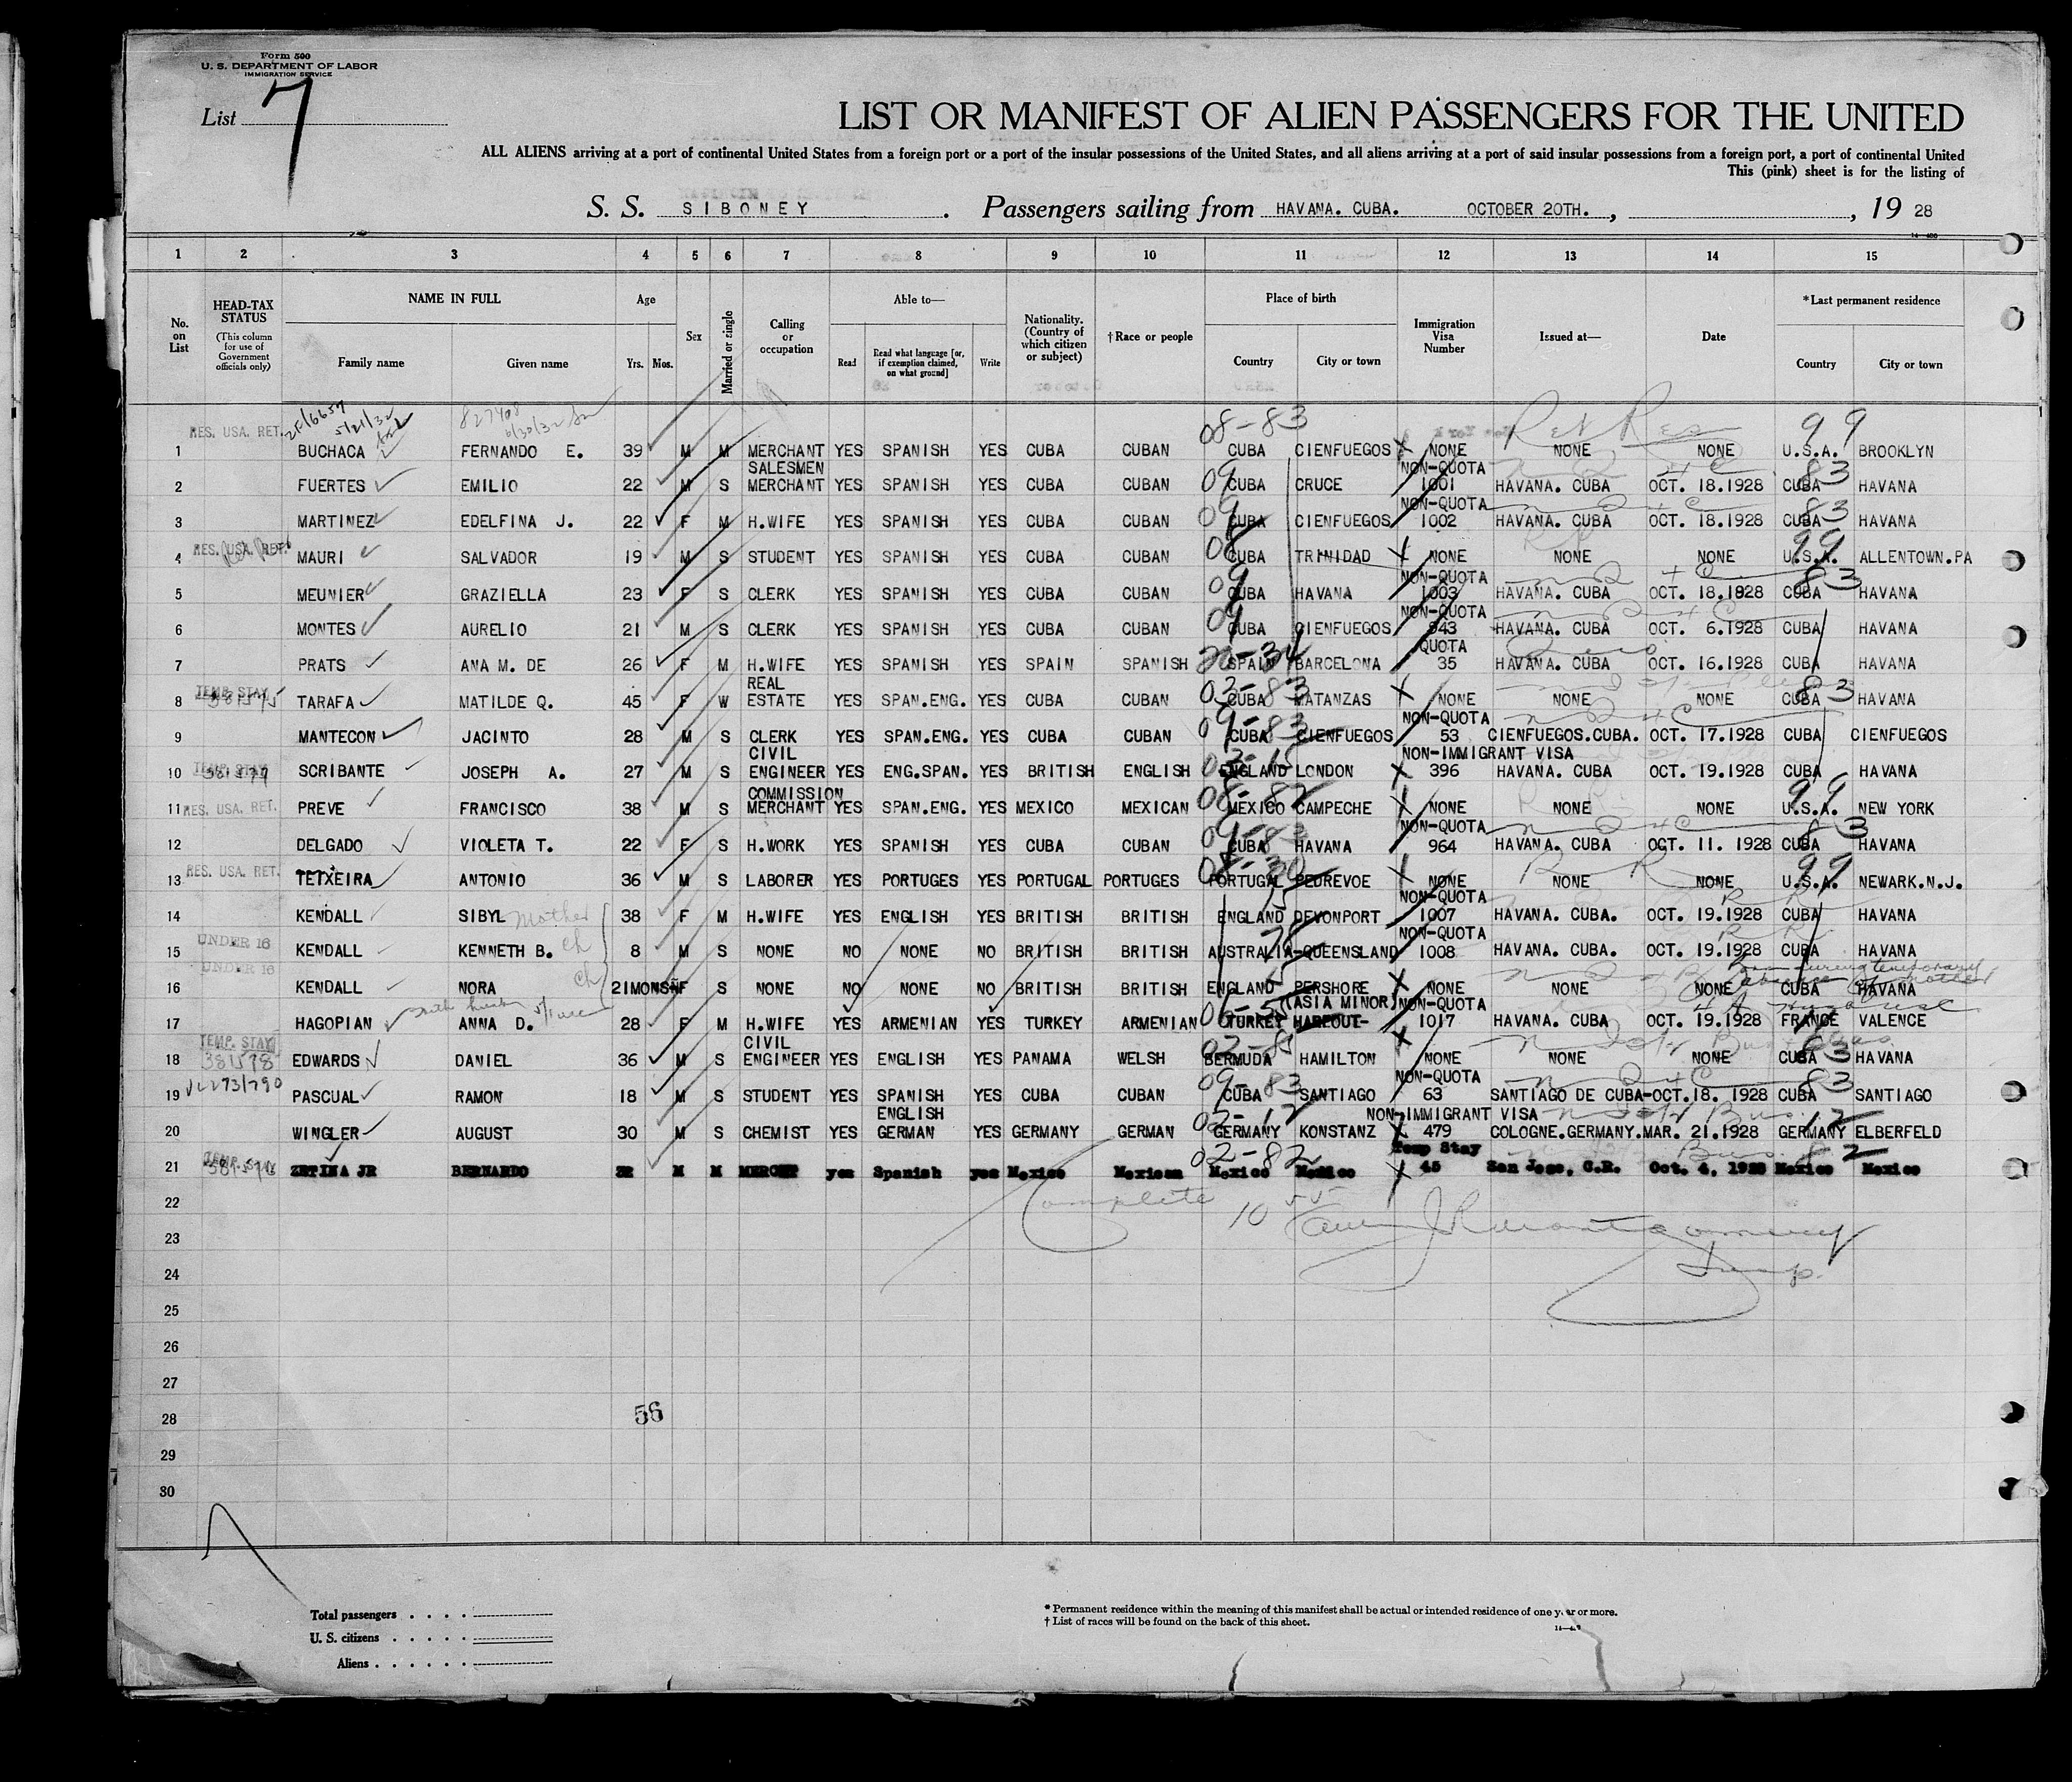 Form 500
U. S. DEPARTMENT OF LABOR
IMMIGRATION SERVICE
List 7
LIST OR MANIFEST OF ALIEN PASSENGERS FOR THE UNITED
ALL ALIENS arriving at a port of continental United States from a foreign port or a port of the insular possessions of the United States, and all aliens arriving at a port of said insular possessions from a foreign port, a port of continental United
This (pink) sheet is for the listing of
S. S. SIBONEY. Passengers sailing from HAVANA. CUBA. OCTOBER 20TH., , 19 28
1 2 3 4 5 6 7 8 9 10 11 12 13 14 15
No. on List
HEAD-TAX STATUS (This column for use of Government officials only)
NAME IN FULL Family name Given name
Age Yrs. Mos.
Sex
Married or single
Calling or occupation
Able to— Read Read what language [or, if exemption claimed, on what ground] Write
Nationality. (Country of which citizen or subject)
†Race or people
Place of birth Country City or town
Immigration Visa Number
Issued at—
Date
*Last permanent residence Country City or town
827408
08-83 Ret Res 99
1 RES. USA. RET. BUCHACA FERNANDO E. 39 M M MERCHANT YES SPANISH YES CUBA CUBAN CUBA CIENFUEGOS NONE NONE NONE U.S.A. BROOKLYN
SALESMEN NON-QUOTA
2 FUERTES EMILIO 22 M S MERCHANT YES SPANISH YES CUBA CUBAN CUBA CRUCE 1001 HAVANA. CUBA OCT. 18.1928 CUBA HAVANA
NON-QUOTA
3 MARTINEZ EDELFINA J. 22 F M H.WIFE YES SPANISH YES CUBA CUBAN CUBA CIENFUEGOS 1002 HAVANA. CUBA OCT. 18.1928 CUBA HAVANA
4 RES. USA. RET. MAURI SALVADOR 19 M S STUDENT YES SPANISH YES CUBA CUBAN CUBA TRINIDAD NONE NONE NONE U.S.A. ALLENTOWN.PA
NON-QUOTA
5 MEUNIER GRAZIELLA 23 F S CLERK YES SPANISH YES CUBA CUBAN CUBA HAVANA 1003 HAVANA. CUBA OCT. 18.1928 CUBA HAVANA
NON-QUOTA
6 MONTES AURELIO 21 M S CLERK YES SPANISH YES CUBA CUBAN CUBA CIENFUEGOS 943 HAVANA. CUBA OCT. 6.1928 CUBA HAVANA
QUOTA
7 PRATS ANA M. DE 26 F M H.WIFE YES SPANISH YES SPAIN SPANISH SPAIN BARCELONA 35 HAVANA. CUBA OCT. 16.1928 CUBA HAVANA
REAL
8 TEMP. STAY TARAFA MATILDE Q. 45 F W ESTATE YES SPAN.ENG. YES CUBA CUBAN CUBA MATANZAS NONE NONE NONE CUBA HAVANA
NON-QUOTA
9 MANTECON JACINTO 28 M S CLERK YES SPAN.ENG. YES CUBA CUBAN CUBA CIENFUEGOS 53 CIENFUEGOS.CUBA. OCT. 17.1928 CUBA CIENFUEGOS
CIVIL NON-IMMIGRANT VISA
10 TEMP. STAY SCRIBANTE JOSEPH A. 27 M S ENGINEER YES ENG.SPAN. YES BRITISH ENGLISH ENGLAND LONDON 396 HAVANA. CUBA OCT. 19.1928 CUBA HAVANA
COMMISSION
11 RES. USA. RET. PREVE FRANCISCO 38 M S MERCHANT YES SPAN.ENG. YES MEXICO MEXICAN MEXICO CAMPECHE NONE NONE NONE U.S.A. NEW YORK
NON-QUOTA
12 DELGADO VIOLETA T. 22 F S H.WORK YES SPANISH YES CUBA CUBAN CUBA HAVANA 964 HAVANA. CUBA OCT. 11. 1928 CUBA HAVANA
13 RES. USA. RET. TEIXEIRA ANTONIO 36 M S LABORER YES PORTUGES YES PORTUGAL PORTUGES PORTUGAL PEDREVOE NONE NONE NONE U.S.A. NEWARK.N.J.
NON-QUOTA
14 KENDALL SIBYL Mother 38 F M H.WIFE YES ENGLISH YES BRITISH BRITISH ENGLAND DEVONPORT 1007 HAVANA. CUBA. OCT. 19.1928 CUBA HAVANA
NON-QUOTA
15 UNDER 16 KENDALL KENNETH B. ch 8 M S NONE NO NONE NO BRITISH BRITISH AUSTRALIA-QUEENSLAND 1008 HAVANA. CUBA. OCT. 19.1928 CUBA HAVANA
16 UNDER 16 KENDALL NORA ch 21MONS F S NONE NO NONE NO BRITISH BRITISH ENGLAND PERSHORE NONE NONE NONE CUBA HAVANA
(ASIA MINOR) NON-QUOTA
17 HAGOPIAN ANNA D. 28 F M H.WIFE YES ARMENIAN YES TURKEY ARMENIAN TURKEY HARPOUT- 1017 HAVANA. CUBA OCT. 19.1928 FRANCE VALENCE
CIVIL
18 TEMP. STAY EDWARDS DANIEL 36 M S ENGINEER YES ENGLISH YES PANAMA WELSH BERMUDA HAMILTON NONE NONE NONE CUBA HAVANA
NON-QUOTA
19 PASCUAL RAMON 18 M S STUDENT YES SPANISH YES CUBA CUBAN CUBA SANTIAGO 63 SANTIAGO DE CUBA-OCT.18. 1928 CUBA SANTIAGO
ENGLISH NON-IMMIGRANT VISA
20 WINGLER AUGUST 30 M S CHEMIST YES GERMAN YES GERMANY GERMAN GERMANY KONSTANZ 479 COLOGNE.GERMANY.MAR. 21.1928 GERMANY ELBERFELD
Temp Stay
21 TEMP. STAY ZETINA JR BERNARDO M M yes Spanish yes Mexico Mexican Mexico Mexico 45 San Jose, C.R. Oct. 4, 1928 Mexico Mexico
22 Complete
23
24
25
26
27
28 56
29
30
Total passengers
U. S. citizens
Aliens
* Permanent residence within the meaning of this manifest shall be actual or intended residence of one year or more.
† List of races will be found on the back of this sheet.